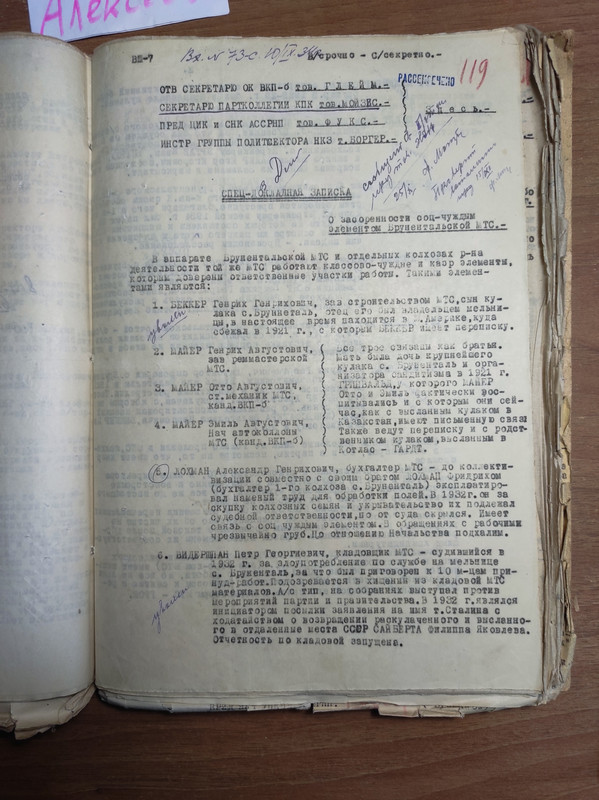 Алексе
ВП-7 Вх. № 73-с 10/IX 34 срочно - С/секретно.-
119
РАССЕКРЕЧЕНО
ОТВ СЕКРЕТАРЮ ОК ВКП-б тов. Г Л Е Й М.-
СЕКРЕТАРЮ ПАРТКОЛЛЕГИИ КПК тов.МОЙЗИС.- З д е с ь.-
ПРЕД ЦИК и СНК АССРНП тов. Ф У К С.-
ИНСТР ГРУППЫ ПОЛИТСЕКТОРА НКЗ т.БОРГЕР.-
СПЕЦ-ДОКЛАДНАЯ ЗАПИСКА
О засоренности соц-чуждым
элементом Брунентальской МТС.-
В аппарате Брунентальской МТС и отдельных колхозах р-на
деятельности той же МТС работают классово-чуждые и каэр элементы,
которым доверены ответственные участки работы. Такими элемен-
тами являются:
1. БЕККЕР Генрих Генрихович, зав строительством МТС,сын ку-
лака с.Брунненталь, отец его был владельцем мельни-
цы,в настоящее время находится в Америке,куда
сбежал в 1921 г., с которым БЕККЕР имеет переписку.
уволен
2. МАЙЕР Генрих Августович,
зав реммастерской
МТС.
3. МАЙЕР Отто Августович,
ст.механик МТС,
канд.ВКП-б
4. МАЙЕР Эмиль Августович,
Нач автоколонны
МТС (канд.ВКП-б)
Все трое связаны как братья.
Мать была дочь крупнейшего
кулака с. Брунненталь и орга-
низатора бандитизма в 1921 г.
ГРИНВАЛЬД,у которого МАЙЕР
Отто и Эмиль фактически вос-
питывались и с которым они сей-
час,как с высланным кулаком в
Казахстан,имеют письменную связь
Также ведут переписку и с родст-
венником кулаком,высланным в
Котлас - ГАРДТ.
5. ЛОХМАН Александр Генрихович, бухгалтер МТС - до коллекти-
визации совместно с своим братом ЛОХМАН Фридрихом
(бухгалтер 1-го колхоза с.Бруненталь) эксплоатиро-
вал наемный труд для обработки полей.В 1932г.он за
скупку колхозных семян и укрывательство их подлежал
судебной ответственности,но от суда скрылся. Имеет
связь с соц чуждым элементом.В обращениях с рабочими
чрезвычайно груб.По отношению Начальства подхалим.
6. ВИДЕРШПАН Петр Георгиевич, кладовщик МТС - судившийся в
1932 г. за злоупотребление по службе на мельнице
с. Бруненталь,за что был приговорен к 10 м-цам при-
нудработ.Подозревается в хищении из кладовой МТС
материалов.А/с тип, на собраниях выступал против
мероприятий партии и правительства.В 1932 г.являлся
инициатором посылки заявления на имя т.Сталина с
ходатайством о возвращении раскулаченного и высланно-
го в отдаленные места СССР САЙБЕРТА Филиппа Яковлева.
Отчетность по кладовой запущена.
уволен